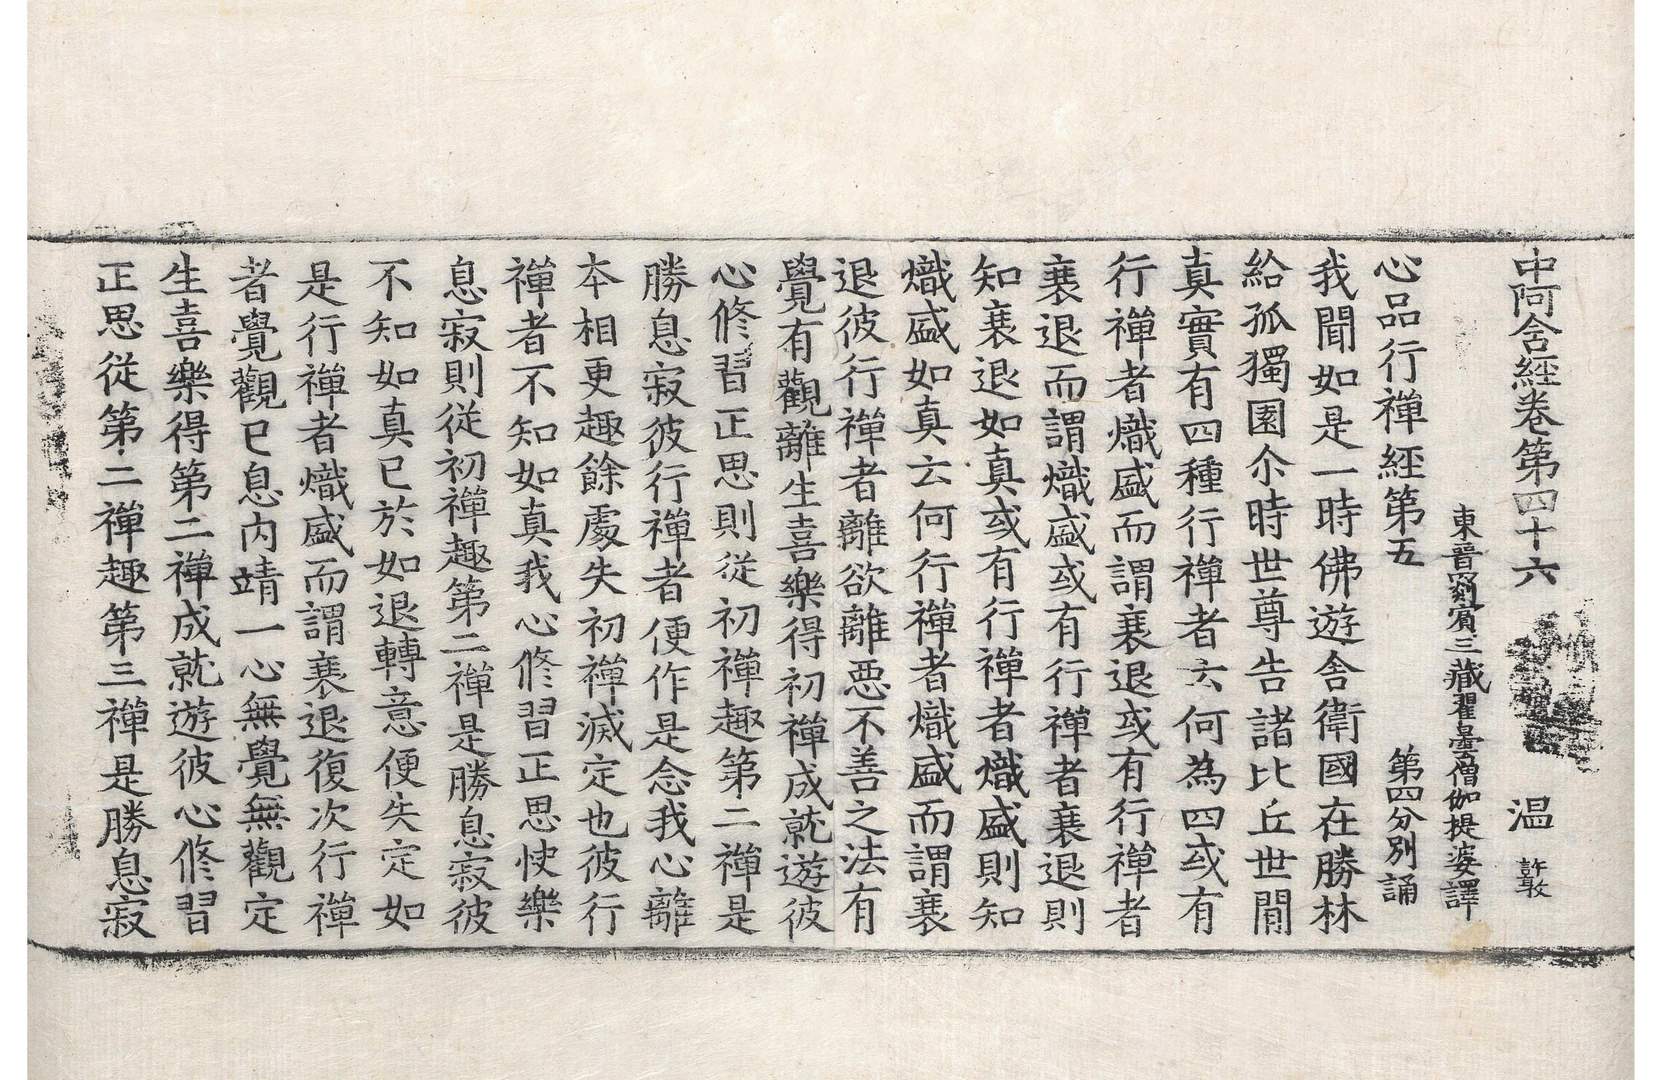 中阿含經卷第四十六 温 許敦
東晉罽賔三藏瞿曇僧伽提婆譯
心品行禪經第五 第四分別誦
我聞如是一時佛遊舎衛國在勝林
給孤獨園尒時世尊告諸比丘世間
真實有四種行禪者云何為四或有
行禪者熾盛而謂衰退或有行禪者
衰退而謂熾盛或有行禪者衰退則
知衰退如真或有行禪者熾盛則知
熾盛如真云何行禪者熾盛而謂衰
退彼行禪者離欲離惡不善之法有
覺有觀離生喜樂得初禪成就遊彼
心修習正思則從初禪趣第二禪是
勝息寂彼行禪者便作是念我心離
夲相更趣餘處失初禪滅定也彼行
禪者不知如真我心修習正思快樂
息寂則從初禪趣第二禪是勝息寂彼
不知如真已於如退轉意便失定如
是行禪者熾盛而謂衰退復次行禪
者覺觀已息內靖一心無覺無觀定
生喜樂得第二禪成就遊彼心修習
正思從第二禪趣第三禪是勝息寂